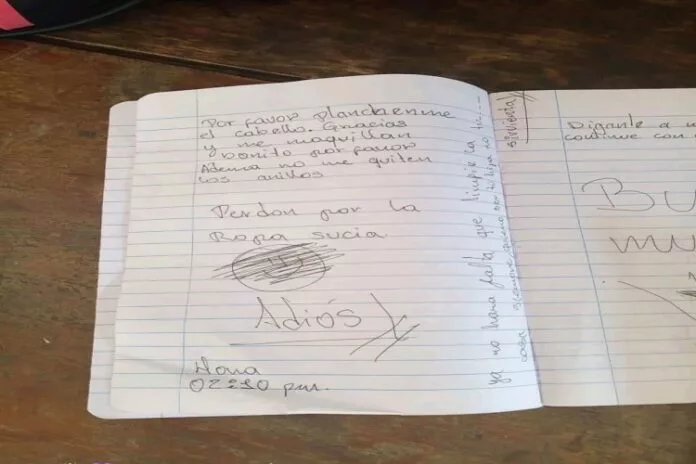 Por favor planchenme
el cabello. Gracias
y me maquillan
bonito por favor
Adema no me quiten
los anillos
Perdon por la
Ropa sucia
Adiós
Hora
02:10 pm.
ya no hara falta que limpie la
casa
sirvienta
Diganle a
continue con
BU
MU